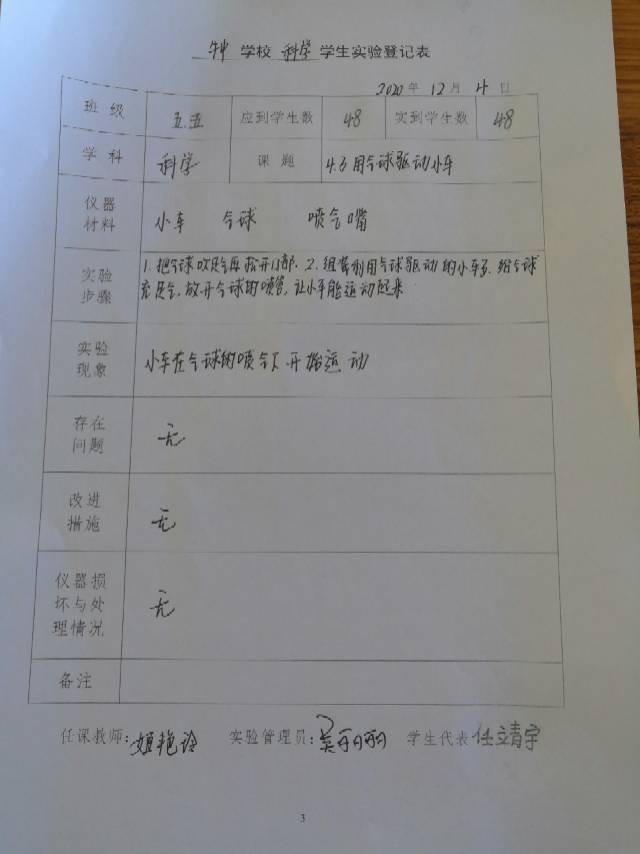 学校 科学 学生实验登记表
2020年 12月 4日
班 级 五.五 应到学生数 48 实到学生数 48
学 科 科学 课 题 4.3 用气球驱动小车
仪器
材料
小车 气球 喷气嘴
实验
步骤
1. 把气球吹足气再松开口部. 2. 组装利用气球驱动的小车, 给气球
充足气, 放开气球的喷管, 让小车能运动起来
实验
现象
小车在气球的喷气下开始运动
存在
问题
无
改进
措施
无
仪器损
坏与处
理情况
无
备注
任课教师: 姬艳玲 实验管理员: 吴丽丽 学生代表 任靖宇
3